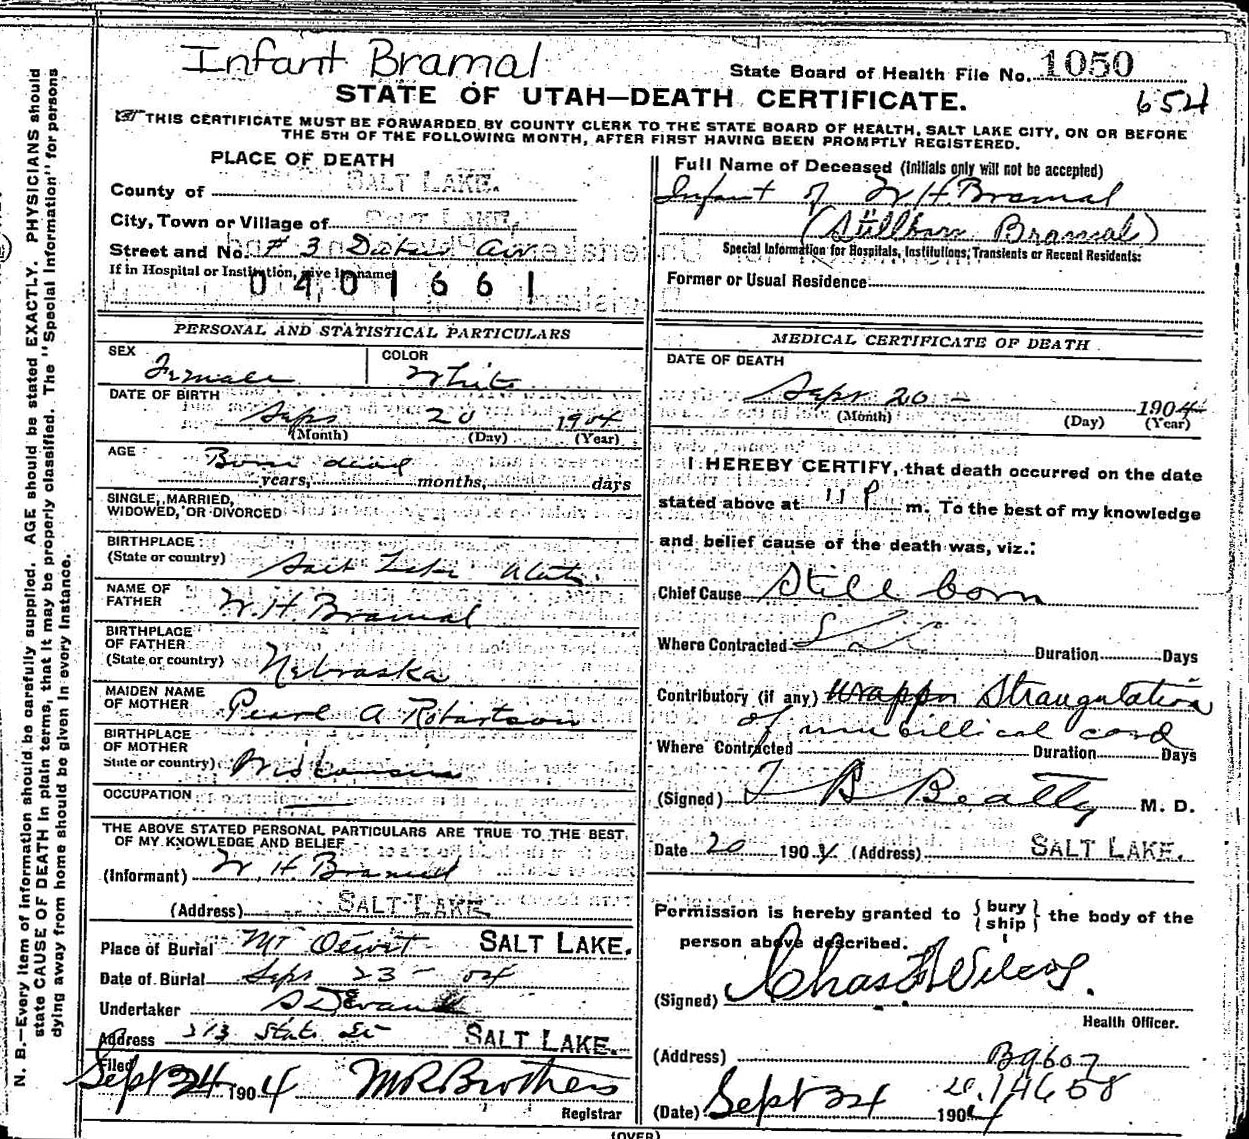 Infant Bramal
State Board of Health File No. 1050
654
STATE OF UTAH—DEATH CERTIFICATE.
THIS CERTIFICATE MUST BE FORWARDED BY COUNTY CLERK TO THE STATE BOARD OF HEALTH, SALT LAKE CITY, ON OR BEFORE
THE 5TH OF THE FOLLOWING MONTH, AFTER FIRST HAVING BEEN PROMPTLY REGISTERED.
PLACE OF DEATH
County of SALT LAKE.
City, Town or Village of SALT LAKE,
Street and No. # 3 Av
If in Hospital or Institution, give its name
0401661
PERSONAL AND STATISTICAL PARTICULARS
SEX Female
COLOR White
DATE OF BIRTH
Sept 20 1904
(Month) (Day) (Year)
AGE Born dead
years, months, days
SINGLE, MARRIED,
WIDOWED, OR DIVORCED
BIRTHPLACE
(State or country) Salt Lake Utah
NAME OF
FATHER W. H. Bramal
BIRTHPLACE
OF FATHER
(State or country) Nebraska
MAIDEN NAME
OF MOTHER Pearl A Robertson
BIRTHPLACE
OF MOTHER
State or country) Wisconsin
OCCUPATION
THE ABOVE STATED PERSONAL PARTICULARS ARE TRUE TO THE BEST
OF MY KNOWLEDGE AND BELIEF
(Informant) W. H. Bramal
(Address) SALT LAKE.
Place of Burial Mt Olivet SALT LAKE.
Date of Burial Sept 23 - 04
Undertaker S D Evans
Address 213 State St SALT LAKE.
Filed
Sept 24 1904 M R Brothers
Registrar
Full Name of Deceased (Initials only will not be accepted)
Infant of W H Bramal
(Stillborn Bramal)
Special Information for Hospitals, Institutions, Transients or Recent Residents:
Former or Usual Residence
MEDICAL CERTIFICATE OF DEATH
DATE OF DEATH
Sept 20 - 1904
(Month) (Day) (Year)
I HEREBY CERTIFY, that death occurred on the date
stated above at 11 P m. To the best of my knowledge
and belief cause of the death was, viz.:
Chief Cause Still born
Where Contracted Duration Days
Contributory (if any) Strangulation
of umbillical cord
Where Contracted Duration Days
(Signed) T B Beatty M. D.
Date 20 1904 (Address) SALT LAKE.
Permission is hereby granted to { bury
ship } the body of the
person above described.
(Signed) Chas F Wilcox.
Health Officer.
(Address) B9607
(Date) Sept 24 1904 14658
N. B.—Every item of information should be carefully supplied. AGE should be stated EXACTLY. PHYSICIANS should
state CAUSE OF DEATH in plain terms, that it may be properly classified. The "Special Information" for persons
dying away from home should be given in every instance.
(OVER)